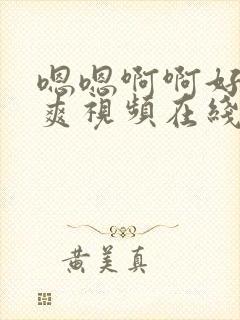 嗯嗯啊啊好
爽視頻在綫
黄美真